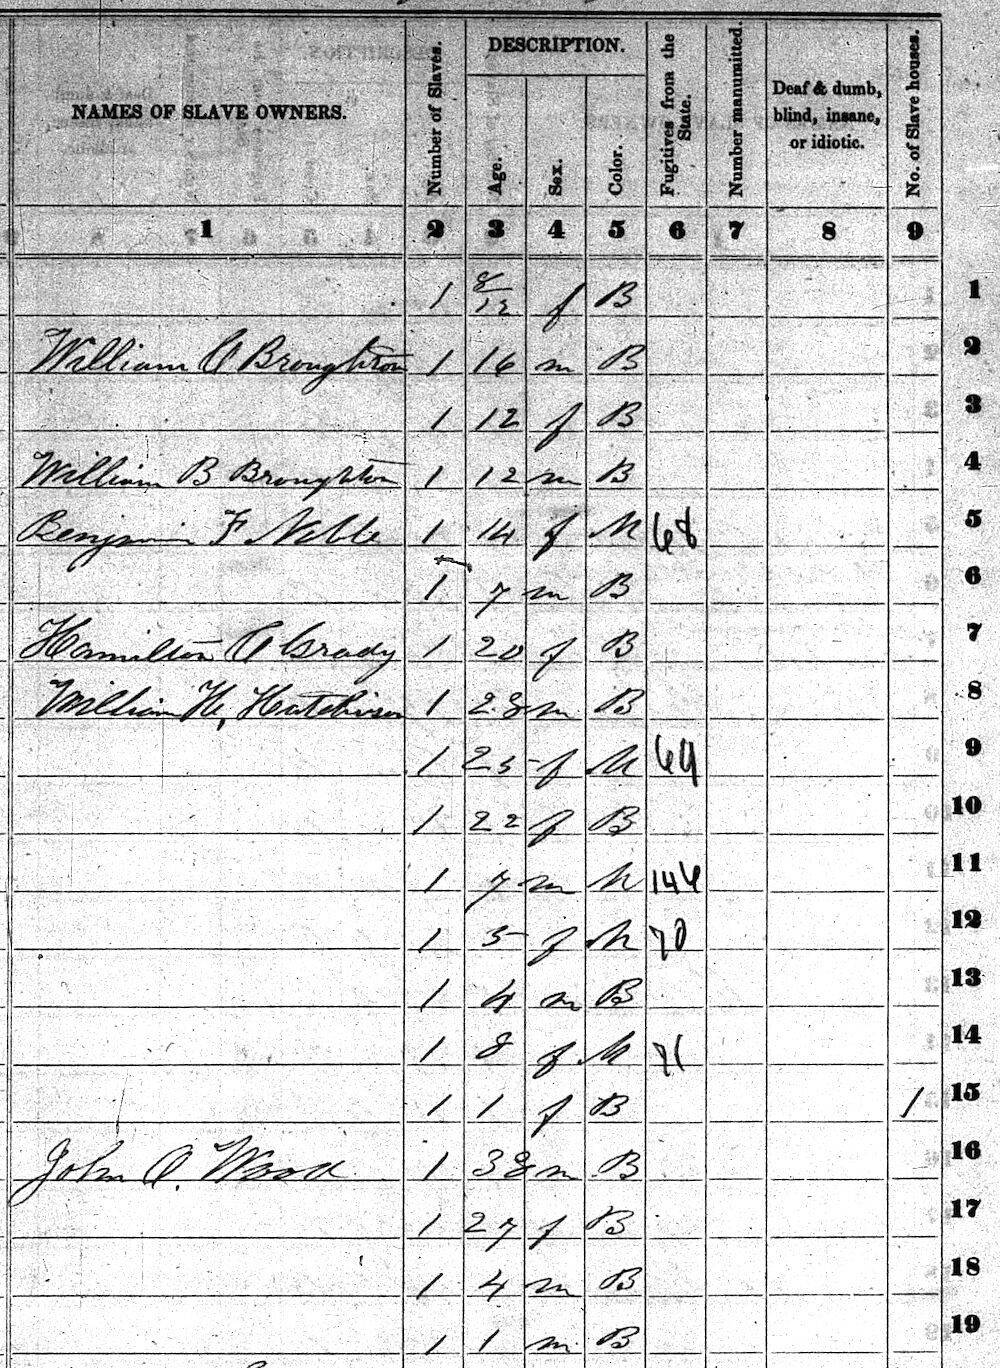 NAMES OF SLAVE OWNERS. Number of Slaves. DESCRIPTION. Age. Sex. Color. Fugitives from the State. Number manumitted. Deaf & dumb, blind, insane, or idiotic. No. of Slave houses.
1 2 3 4 5 6 7 8 9
1 8/12 f B 1
William A Broughton 1 16 m B 2
1 12 f B 3
William B Broughton 1 12 m B 4
Benjamin F Noble 1 14 f M 68 5
1 7 m B 6
Hamilton A Grady 1 20 f B 7
William H. Hutchinson 1 28 m B 8
1 25 f M 69 9
1 22 f B 10
1 7 m M 146 11
1 5 f M 70 12
1 4 m B 13
1 8 f M 71 14
1 1 f B 1 15
John A. Wood 1 38 m B 16
1 27 f B 17
1 4 m B 18
1 1 m B 19